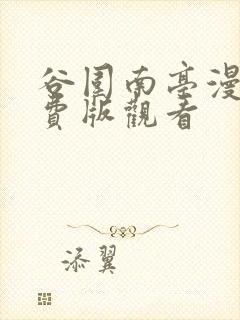 谷围南亭漫
费版觀看
添翼